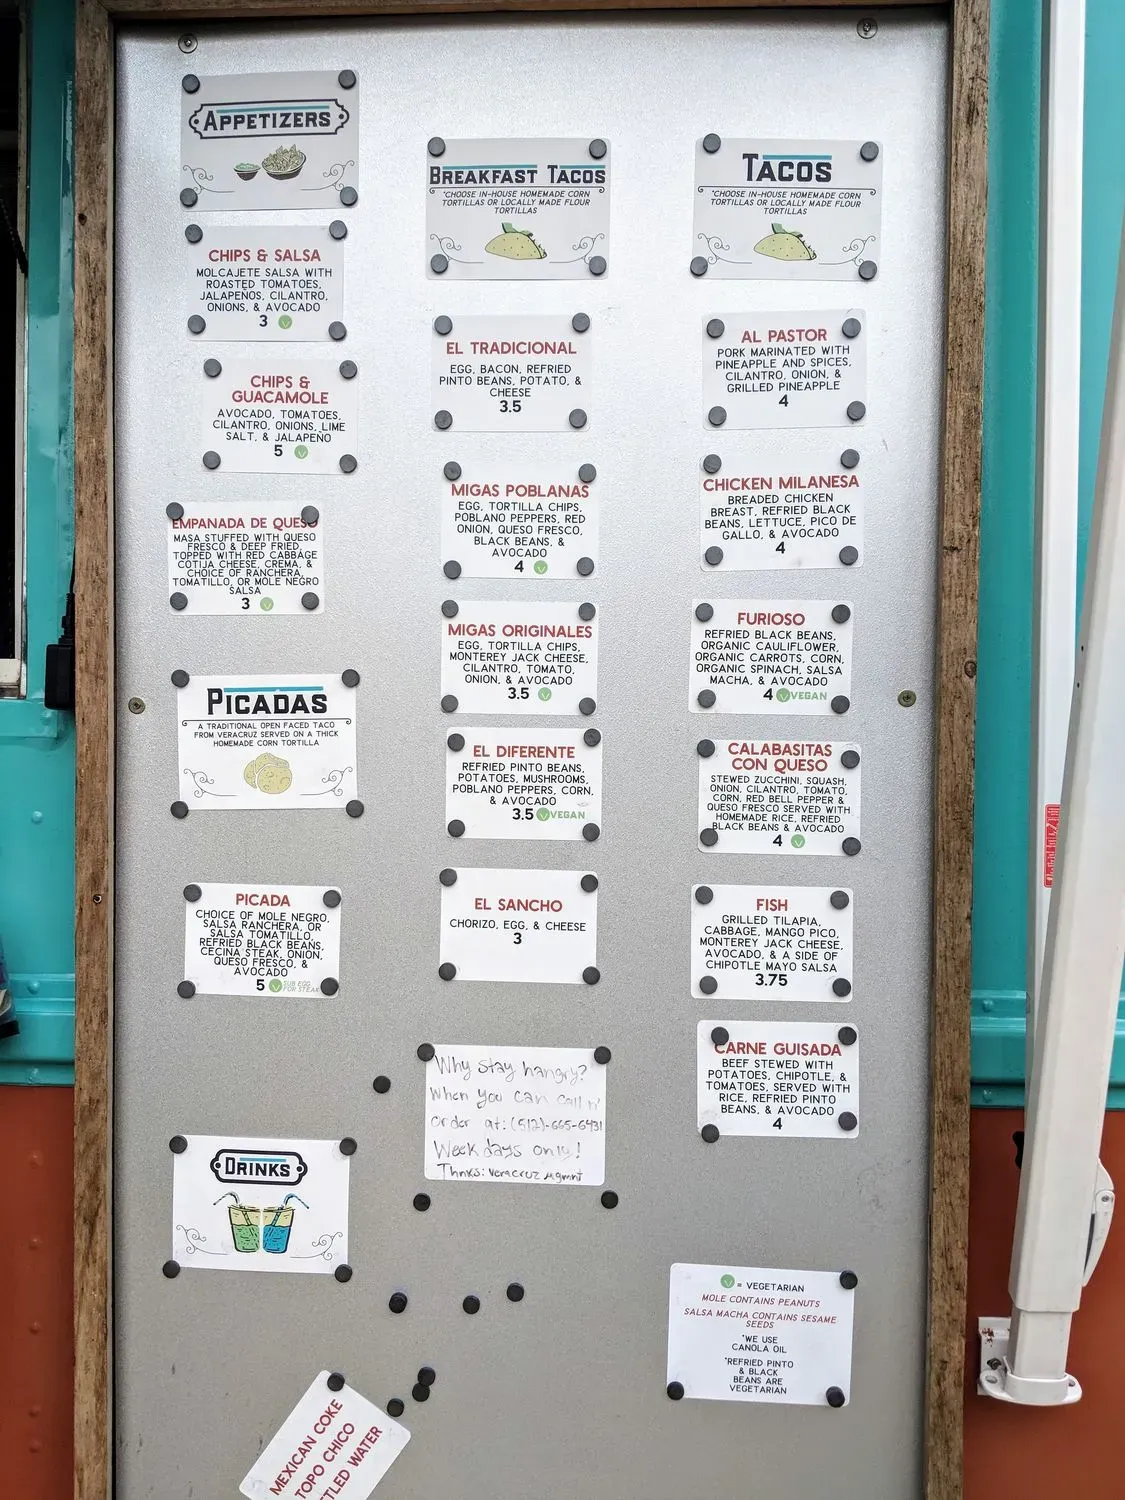 APPETIZERS
CHIPS & SALSA
MOLCAJETE SALSA WITH
ROASTED TOMATOES,
JALAPEÑOS, CILANTRO,
ONIONS, & AVOCADO
3 V
CHIPS &
GUACAMOLE
AVOCADO, TOMATOES,
CILANTRO, ONIONS, LIME
SALT, & JALAPEÑO
5 V
EMPANADA DE QUESO
MASA STUFFED WITH QUESO
FRESCO & DEEP FRIED,
TOPPED WITH RED CABBAGE
COTIJA CHEESE, CREMA, &
CHOICE OF RANCHERA,
TOMATILLO, OR MOLE NEGRO
SALSA
3 V
PICADAS
A TRADITIONAL OPEN FACED TACO
FROM VERACRUZ SERVED ON A THICK
HOMEMADE CORN TORTILLA
PICADA
CHOICE OF MOLE NEGRO,
SALSA RANCHERA, OR
SALSA TOMATILLO,
REFRIED BLACK BEANS,
CECINA STEAK, ONION,
QUESO FRESCO, &
AVOCADO
5 V SUB EGG
FOR STEAK
DRINKS
MEXICAN COKE
TOPO CHICO
TTLED WATER
BREAKFAST TACOS
*CHOOSE IN-HOUSE HOMEMADE CORN
TORTILLAS OR LOCALLY MADE FLOUR
TORTILLAS
EL TRADICIONAL
EGG, BACON, REFRIED
PINTO BEANS, POTATO, &
CHEESE
3.5
MIGAS POBLANAS
EGG, TORTILLA CHIPS,
POBLANO PEPPERS, RED
ONION, QUESO FRESCO,
BLACK BEANS, &
AVOCADO
4 V
MIGAS ORIGINALES
EGG, TORTILLA CHIPS,
MONTEREY JACK CHEESE,
CILANTRO, TOMATO,
ONION, & AVOCADO
3.5 V
EL DIFERENTE
REFRIED PINTO BEANS,
POTATOES, MUSHROOMS,
POBLANO PEPPERS, CORN,
& AVOCADO
3.5 V VEGAN
EL SANCHO
CHORIZO, EGG, & CHEESE
3
Why stay hangry?
when you can call n'
order at: (512)-665-6431
Weekdays only!
Thnks: Veracruz Mgmnt
TACOS
*CHOOSE IN-HOUSE HOMEMADE CORN
TORTILLAS OR LOCALLY MADE FLOUR
TORTILLAS
AL PASTOR
PORK MARINATED WITH
PINEAPPLE AND SPICES,
CILANTRO, ONION, &
GRILLED PINEAPPLE
4
CHICKEN MILANESA
BREADED CHICKEN
BREAST, REFRIED BLACK
BEANS, LETTUCE, PICO DE
GALLO, & AVOCADO
4
FURIOSO
REFRIED BLACK BEANS,
ORGANIC CAULIFLOWER,
ORGANIC CARROTS, CORN,
ORGANIC SPINACH, SALSA
MACHA, & AVOCADO
4 V VEGAN
CALABASITAS
CON QUESO
STEWED ZUCCHINI, SQUASH,
ONION, CILANTRO, TOMATO,
CORN, RED BELL PEPPER &
QUESO FRESCO SERVED WITH
HOMEMADE RICE, REFRIED
BLACK BEANS & AVOCADO
4 V
FISH
GRILLED TILAPIA,
CABBAGE, MANGO PICO,
MONTEREY JACK CHEESE,
AVOCADO, & A SIDE OF
CHIPOTLE MAYO SALSA
3.75
CARNE GUISADA
BEEF STEWED WITH
POTATOES, CHIPOTLE, &
TOMATOES, SERVED WITH
RICE, REFRIED PINTO
BEANS, & AVOCADO
4
V = VEGETARIAN
MOLE CONTAINS PEANUTS
SALSA MACHA CONTAINS SESAME
SEEDS
*WE USE
CANOLA OIL
*REFRIED PINTO
& BLACK
BEANS ARE
VEGETARIAN